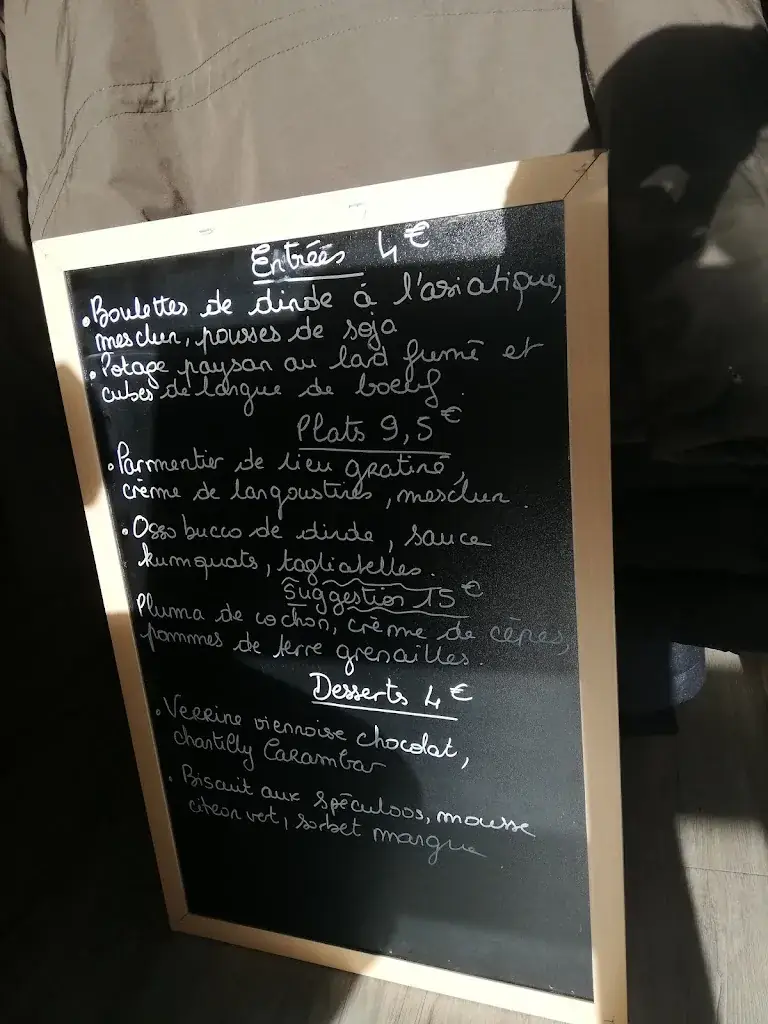 Entrées 4€
• Boulettes de dinde à l'asiatique,
mesclun, pousses de soja
• Potage paysan au lard fumé et
cubes de langue de boeuf.
Plats 9,5€
• Parmentier de lieu gratiné,
crème de langoustines, mesclun.
• Osso bucco de dinde, sauce
kumquats, tagliatelles.
Suggestion 15€
Pluma de cochon, crème de cèpes,
pommes de terre grenailles.
Desserts 4€
• Verrine viennoise chocolat,
chantilly Carambar
• Biscuit aux spéculoos, mousse
citron vert, sorbet mangue